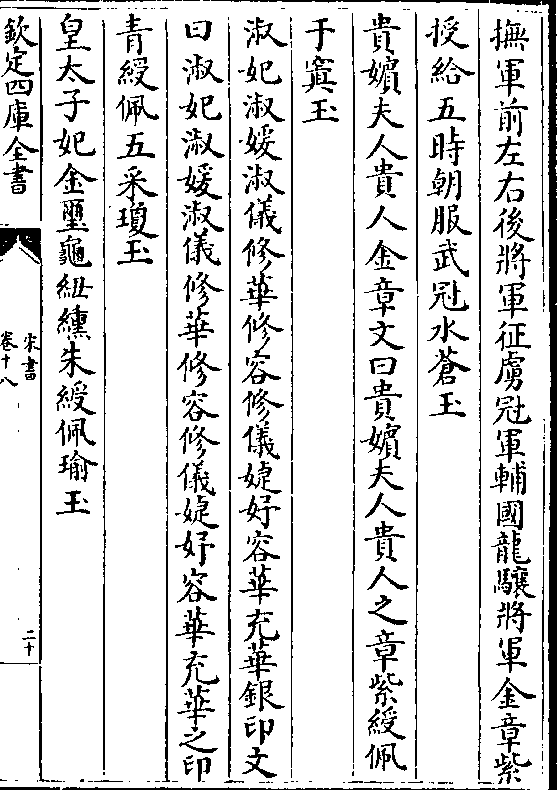 撫軍前左右後將軍征虜冠軍輔國龍驤將軍金章紫
授給五時朝服武冠水蒼玉
貴嬪夫人貴人金章文曰貴嬪夫人貴人之章紫綬佩
于寘玉
淑妃淑媛淑儀修華修容修儀婕妤容華充華銀印文
曰淑妃淑媛淑儀修華修容修儀婕妤容華充華之印
青綬佩五采瓊玉
皇太子妃金璽龜紐纁朱綬佩瑜玉
欽定四庫全書
宋書
卷十八
二十